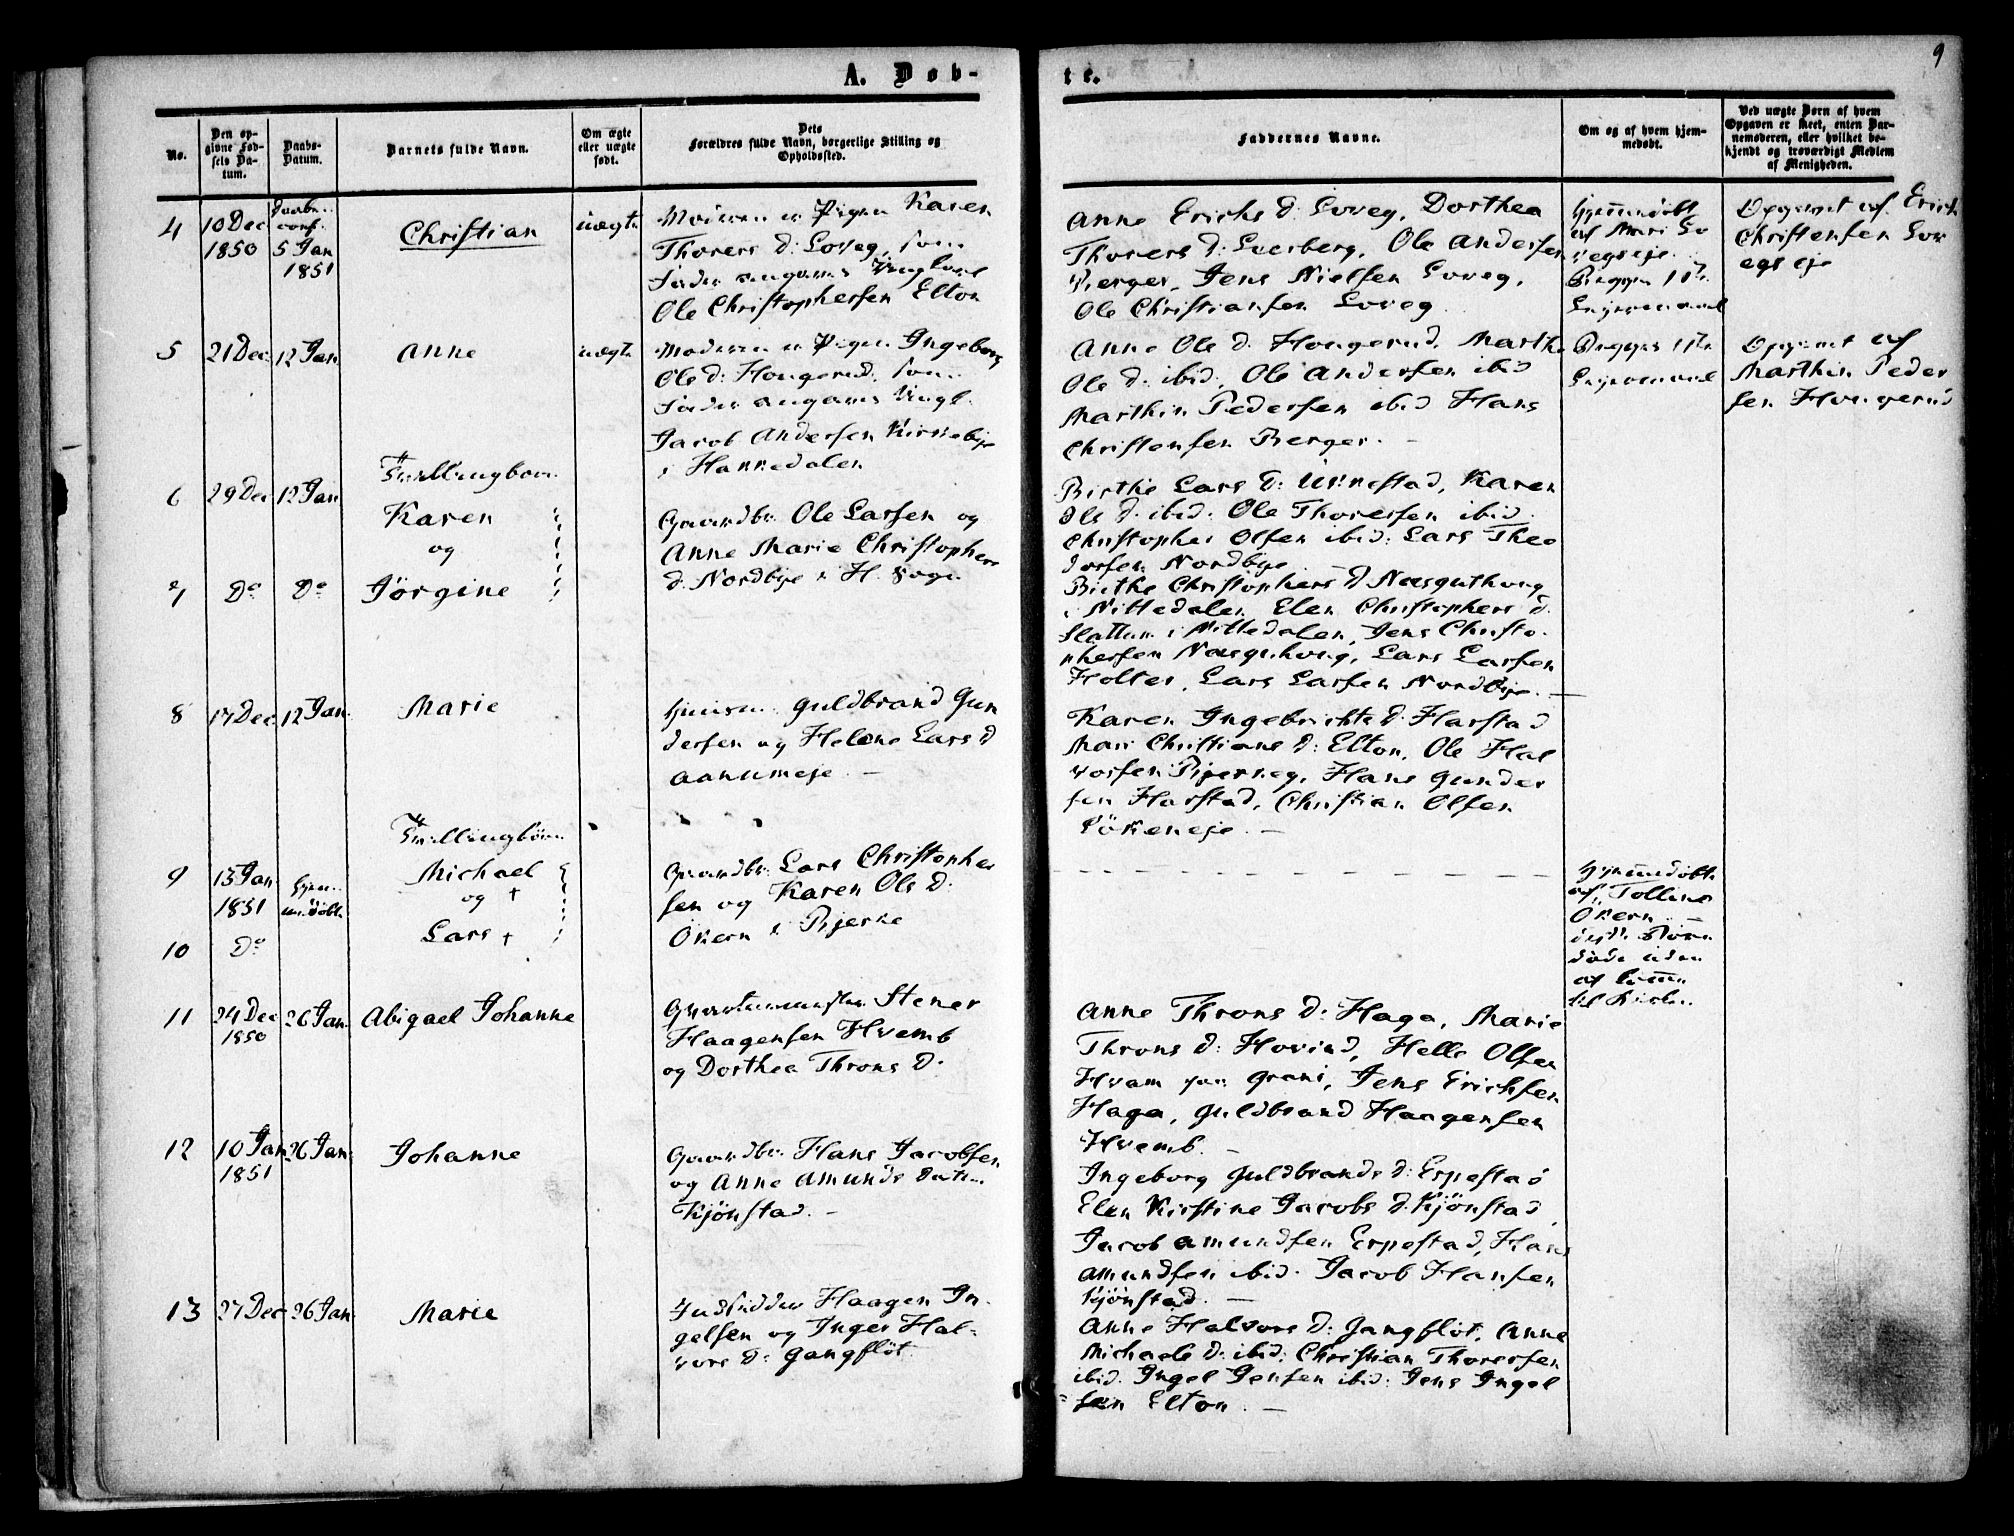 9
A. Døb-
te.
No.
Den op-
givne Fød-
sels Da-
tum.
Daabs-
Datum.
Barnets fulde Navn.
Om ægte
eller uægte
født.
Dets
Forældres fulde Navn, borgerlige Stilling og
Opholdssted.
Faddernes Navne.
Om og af hvem hjem-
medøbt.
Ved uægte Børn af hvem
Opgaven er skeet, enten Bar-
nemoderen, eller hvilket be-
kjendt og troværdigt Medlem
af Menigheden.
4
10 Dec
1850
Daabs
conf.
5 Jan
1851
Christian
uægte
Moderen er Pigen Karen
Thorers d: Loveg, som
Fader angaves Ungkarl
Ole Christophersen Elton
Anne Erichs d: Loveg, Dorthea
Thorers d: Leerberg, Ole Andersen
Berger, Jens Nielsen Loveg,
Ole Christiansen Loveg
Hjemmedøbt
af Mari Lo
vegseje
Begges 1ste
Leiermaal
Opgivet af Erich
Christensen Lov
egseje
5
21 Dec
12 Jan
Anne
uægte
Moderen er Pigen Ingeborg
Ole d: Hougerud, som
Fader angaves Ungk.
Jacob Andersen Kirkebye
i Hannedalen
Anne Ole d. Hougerud, Marthe
Ole d: ibid, Ole Andersen ibid
Marthin Pedersen ibid Hans
Christensen Berger. —
Begges 1ste
Leiermaal
Opgivet af
Marthin Peder
sen Hougerud
6
29 Dec
12 Jan
Tvillingbørn
Karen
og
Gaardbr. Ole Larsen og
Anne Marie Christophers
d: Nordbye i H. Sogn
Birthe Lars d: Urnestad, Karen
Ole d. ibid: Ole Thoresen ibid.
Christopher Olsen ibid: Lars Theo
dorsen Nordbye
7
Do
Do
Jörgine
Birthe Christophers d Næsguthoug
i Nittedalen, Elen Christophers d.
Slattum i Nittedalen, Jens Christo-
phersen Næsguhoug, Lars Larsen
Holter, Lars Larsen Nordbye. —
8
17 Dec
12 Jan
Marie
Huusm. Guldbrand Gun
dersen og Helene Lars d
Aanumeje. —
Karen Ingebrichts d: Harstad
Mari Christians d: Elton, Ole Hal
vorsen Bjerneg, Hans Gunder
sen Harstad, Christian Olsen
Lökeneje. —
9
13 Jan
1851
Hjem-
medøbt
Tvillingbørn
Michael
og †
Gaardbr: Lars Christopher
sen og Karen Ole d:
Økern i Bjerke
Hjemmedøbt
af Tolline
Økern —
disse Børn
døde uden
at komme
til Kirken
10
Do
Lars †
11
24 Dec
1850
26 Jan
Abigael Johanne
Qvartermester Stener
Haagensen Hvamb
og Dorthea Throns d:
Anne Throns d: Haga, Marie
Throns d: Hovind, Helle Olsen
Hvam paa Grani, Jens Erichsen
Haga, Guldbrand Haagensen
Hvemb. —
12
10 Jan
1851
26 Jan
Johanne
Gaardbr. Hans Jacobsen
og Anne Amunds Datter
Kjønstad. —
Ingeborg Guldbrands d: Erpestad
Elen Kirstine Jacobs d. Kjönstad,
Jacob Amundsen Erpestad, Hans
Amundsen ibid. Jacob Hansen
Kjönstad. —
13
27 Dec
26 Jan
Marie
Indsidder Haagen In-
gelsen og Inger Hal-
vors d: Gangflöt
Anne Halvors d: Gangflöt, Anne
Michaels d: ibid: Christian Thoresen
ibid. Ingel Jensen ibid: Jens Ingel
sen Elton. —